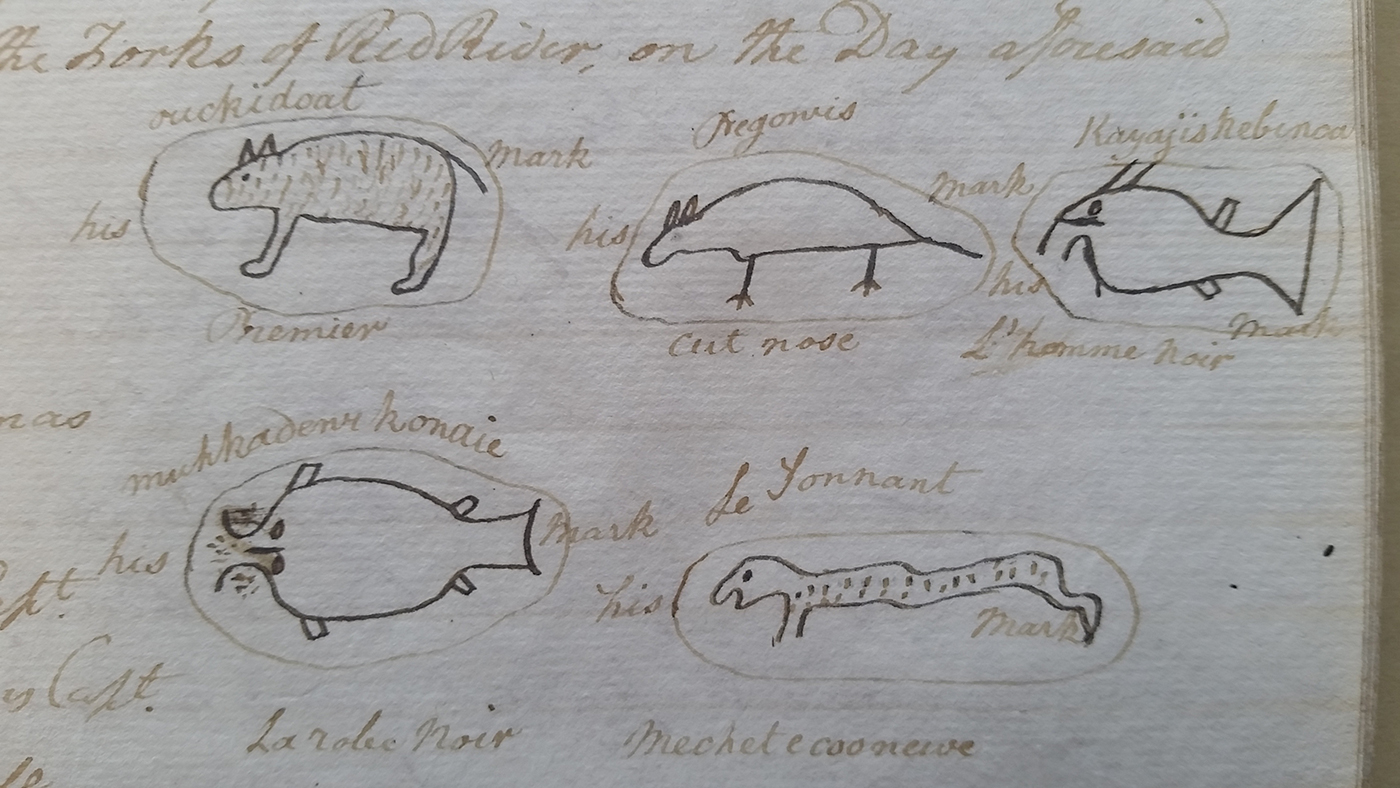 the Forks of Red River, on the Day aforesaid
ouckidoat
his mark
Premier
Pegowis
his mark
Cut nose
Kayajiskebinoa
his mark
L'homme Noir
mas
muhkadewikonaie
his mark
La robe Noir
Le Sonnant
his mark
Mechetecooneuwe
Capt.